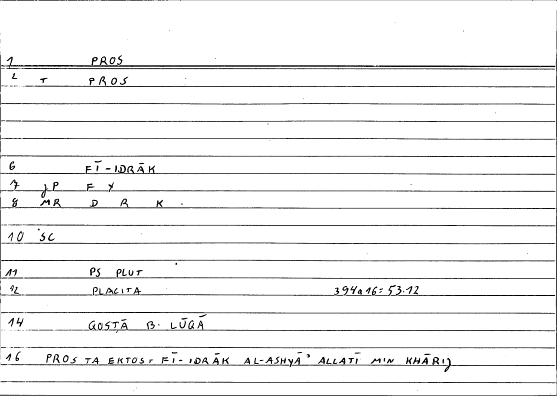 1 PROS
2 T PROS
6 FĪ-IDRĀK
7 JP F Y
8 MR D R K
10 SC
11 PS PLUT
12 PLACITA 394a16=53.12
14 QOSṬĀ B. LŪQĀ
16 PROS TA EKTOS= FĪ-IDRĀK AL-ASHYĀ' ALLATĪ MIN KHĀRIJ